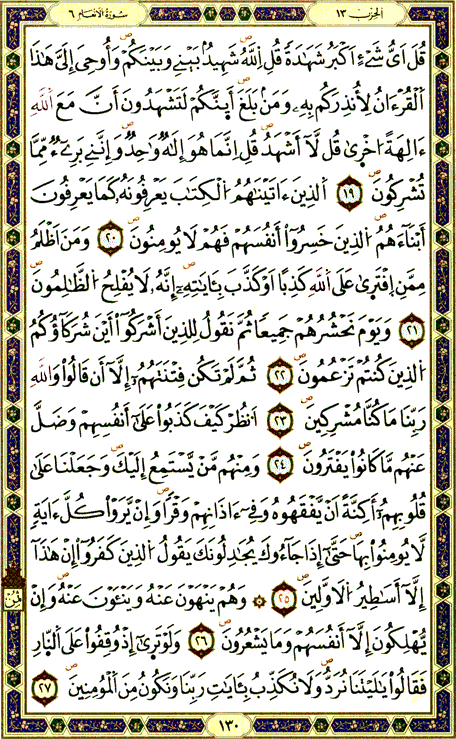 الحزب ١٣
سورة الأنعام ٦
قُلَ اَيُّ شَےْءٍ اَكْبَرُ شَهَٰدَةٗ قُلِ اِللَّهُ شَهِيدُۢ بَيْنِے وَبَيْنَكُمْ وَأُوحِيَ إِلَيَّ هَٰذَا
اَ۬لْقُرْءَانُ لِأُنذِرَكُم بِهِۦ وَمَنۢ بَلَغَ أَئِنَّكُمْ لَتَشْهَدُونَ أَنَّ مَعَ اَ۬للَّهِ
ءَالِهَةً اُخْر۪يٰ قُل لَّآ أَشْهَدُ قُلِ اِنَّمَا هُوَ إِلَٰهٞ وَٰحِدٞ وَإِنَّنِے بَرِےٓءٞ مِّمَّا
تُشْرِكُونَ ١٩ اَ۬لذِينَ ءَاتَيْنَٰهُمُ اُ۬لْكِتَٰبَ يَعْرِفُونَهُۥ كَمَا يَعْرِفُونَ
أَبْنَآءَهُمُ اُ۬لذِينَ خَسِرُوٓاْ أَنفُسَهُمْ فَهُمْ لَا يُومِنُونَ ٢٠ وَمَنَ اَظْلَمُ
مِمَّنِ اِ۪فْتَر۪يٰ عَلَي اَ۬للَّهِ كَذِباً اَوْ كَذَّبَ بِـَٔايَٰتِهِۦٓ إِنَّهُۥ لَا يُفْلِحُ اُ۬لظَّٰلِمُونَ
٢١ وَيَوْمَ نَحْشُرُهُمْ جَمِيعاٗ ثُمَّ نَقُولُ لِلذِينَ أَشْرَكُوٓاْ أَيْنَ شُرَكَآؤُكُمُ
اُ۬لذِينَ كُنتُمْ تَزْعُمُونَ ٢٢ ثُمَّ لَمْ تَكُن فِتْنَتَهُمُۥٓ إِلَّآ أَن قَالُواْ وَاللَّهِ
رَبِّنَا مَا كُنَّا مُشْرِكِينَ ٢٣ اَ۟نظُرْ كَيْفَ كَذَبُواْ عَلَيٰٓ أَنفُسِهِمْ وَضَلَّ
عَنْهُم مَّا كَانُواْ يَفْتَرُونَ ٢٤ وَمِنْهُم مَّنْ يَّسْتَمِعُ إِلَيْكَ وَجَعَلْنَا عَلَيٰ
قُلُوبِهِمُۥٓ أَكِنَّةً اَنْ يَّفْقَهُوهُ وَفِےٓ ءَاذَانِهِمْ وَقْراٗ وَإِنْ يَّرَوْاْ كُلَّ ءَايَةٖ
لَّا يُومِنُواْ بِهَا حَتَّيٰٓ إِذَا جَآءُوكَ يُجَٰدِلُونَكَ يَقُولُ اُ۬لذِينَ كَفَرُوٓاْ إِنْ هَٰذَآ
إِلَّآ أَسَٰطِيرُ اُ۬لَاوَّلِينَ ٢٥ ۞ وَهُمْ يَنْهَوْنَ عَنْهُ وَيَنْـَٔوْنَ عَنْهُ وَإِنْ
يُّهْلِكُونَ إِلَّآ أَنفُسَهُمْ وَمَا يَشْعُرُونَ ٢٦ وَلَوْ تَر۪يٰٓ إِذْ وُقِفُواْ عَلَي اَ۬لنّ۪ارِ
فَقَالُواْ يَٰلَيْتَنَا نُرَدُّ وَلَا نُكَذِّبُ بِـَٔايَٰتِ رَبِّنَا وَنَكُونُ مِنَ اَ۬لْمُومِنِينَ ٢٧
ثمن
١٣٠